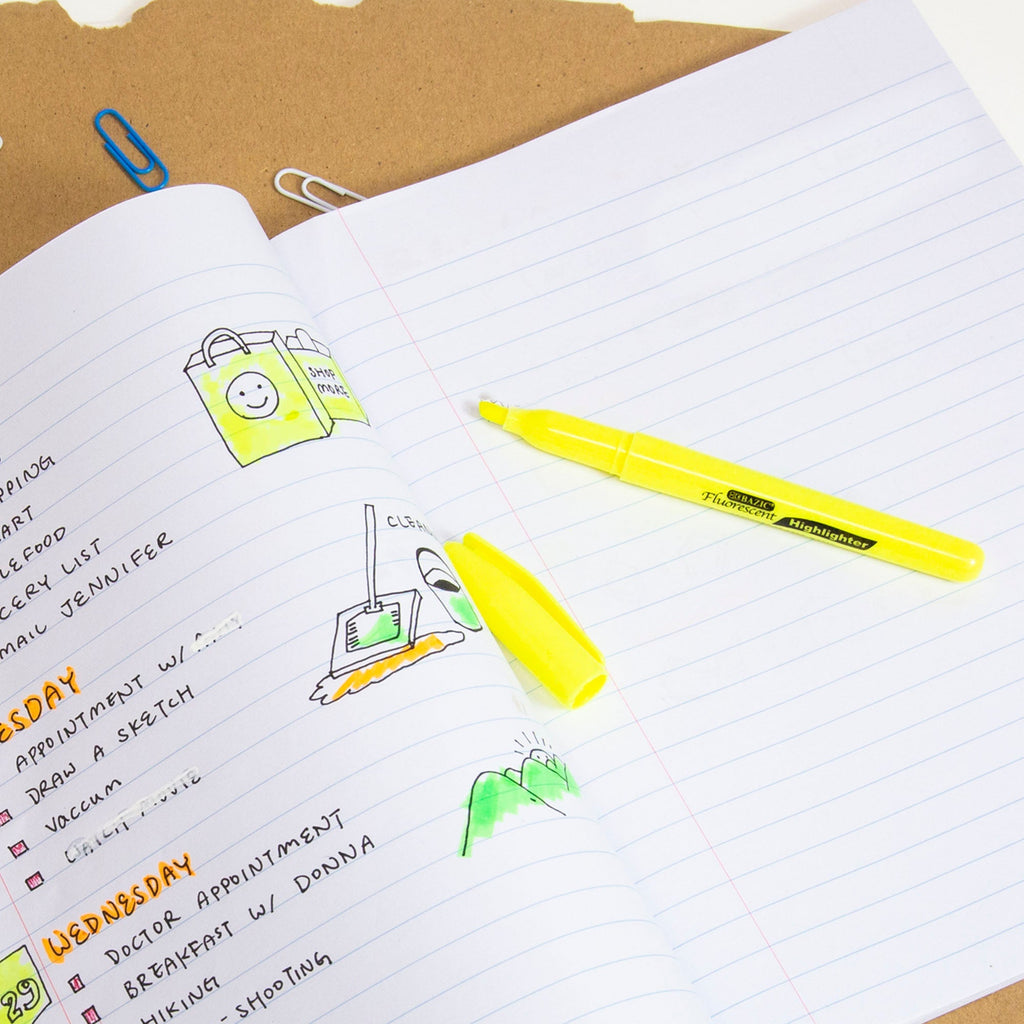 SHOP
MORE
PPING
ART
LEFOOD
CERY LIST
MAIL JENNIFER
CLEAN
BAZIC
Fluorescent Highlighter
ESDAY
APPOINTMENT W/
DRAW A SKETCH
VACCUM
WATCH MOVIE
WEDNESDAY
DOCTOR APPOINTMENT
BREAKFAST W/ DONNA
HIKING
- SHOOTING
29